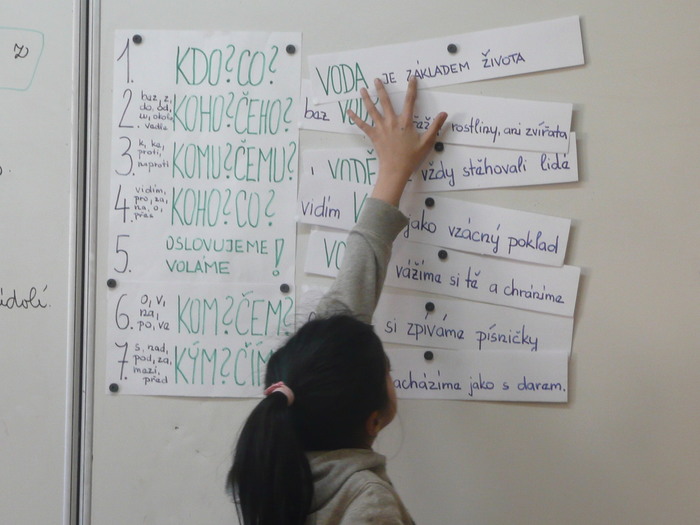 z
ídolí.
1. KDO? CO?
2. bez, z, do, od, u, okolo, vedle KOHO? ČEHO?
3. k, ke, proti, naproti KOMU? ČEMU?
4. vidím, pro, za, na, o, přes KOHO? CO?
5. OSLOVUJEME VOLÁME !
6. o, v, na, po, ve KOM? ČEM?
7. s, nad, pod, za, mezi, před KÝM? ČÍM
VODA JE ZÁKLADEM ŽIVOTA
bez rostliny, ani zvířata
VODĚ vždy stěhovali lidé
vidím V jako vzácný poklad
VO vážíme si tě a chráníme
si zpíváme písničky
acházíme jako s darem.